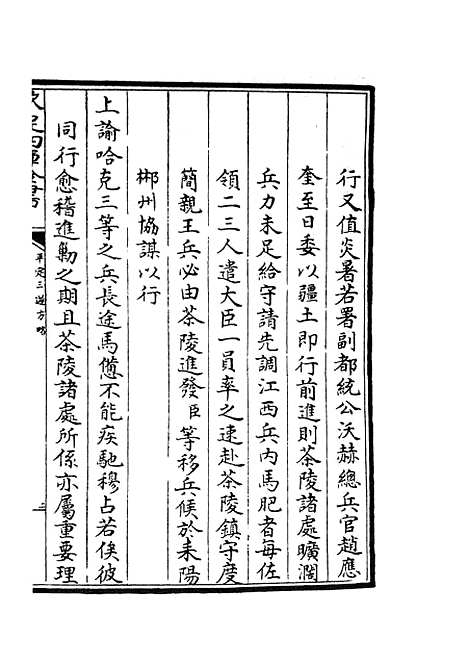 行又值炎暑若署副都統公沃赫總兵官趙應
奎至日委以疆土即行前進則茶陵諸處曠濶
兵力未足給守請先調江西兵內馬肥者每佐
領二三人遣大臣一員率之速赴茶陵鎮守度
簡親王兵必由茶陵進發臣等移兵候於耒陽
郴州協謀以行
上諭哈克三等之兵長途馬憊不能疾馳穆占若俟彼
同行愈稽進勦之期且茶陵諸處所係亦屬重要理
欽定四庫全書
平定三逆方略
二